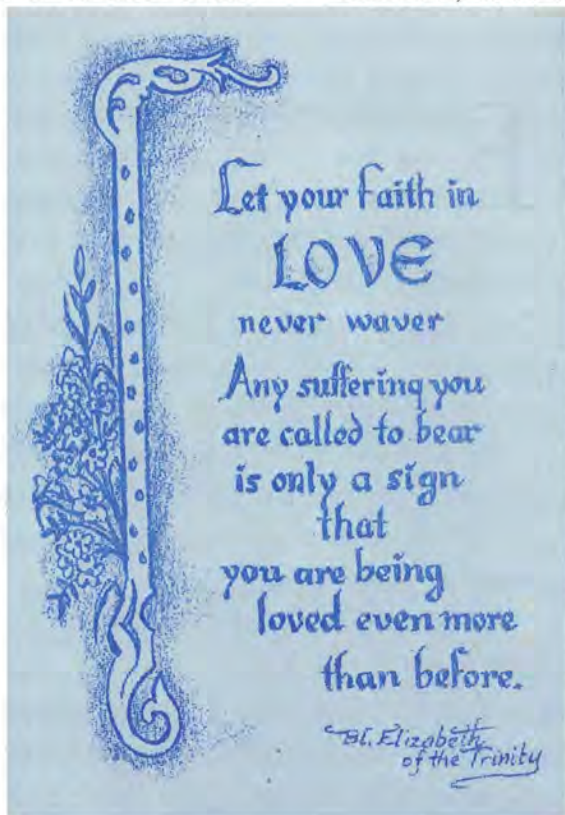 Let your faith in
LOVE
never waver
Any suffering you
are called to bear
is only a sign
that
you are being
loved even more
than before.
Bl. Elizabeth
of the Trinity